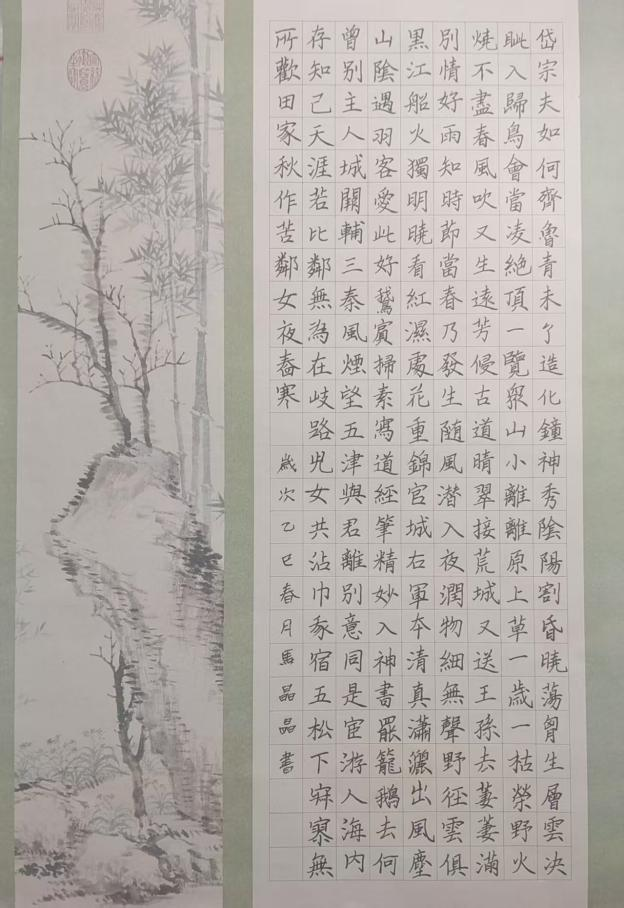 岱宗夫如何齊魯青未了造化鐘神秀陰陽割昏曉蕩胷生層雲決
眦入歸鳥會當凌絕頂一覽衆山小離離原上草一歲一枯榮野火
燒不盡春風吹又生遠芳侵古道晴翠接荒城又送王孫去萋萋滿
別情好雨知時節當春乃發生随風潛入夜潤物細無聲野徑雲俱
黑江船火獨明曉看紅濕處花重錦官城右軍本清真瀟灑出風塵
山陰遇羽客愛此好鵞賓掃素寫道經筆精妙入神書罷籠鵝去何
曾別主人城闕輔三秦風煙望五津與君離別意同是宦游人海內
存知己天涯若比鄰無為在岐路兒女共沾巾我宿五松下寂寥無
所歡田家秋作苦鄰女夜舂寒
歲次乙巳春月馬晶晶書